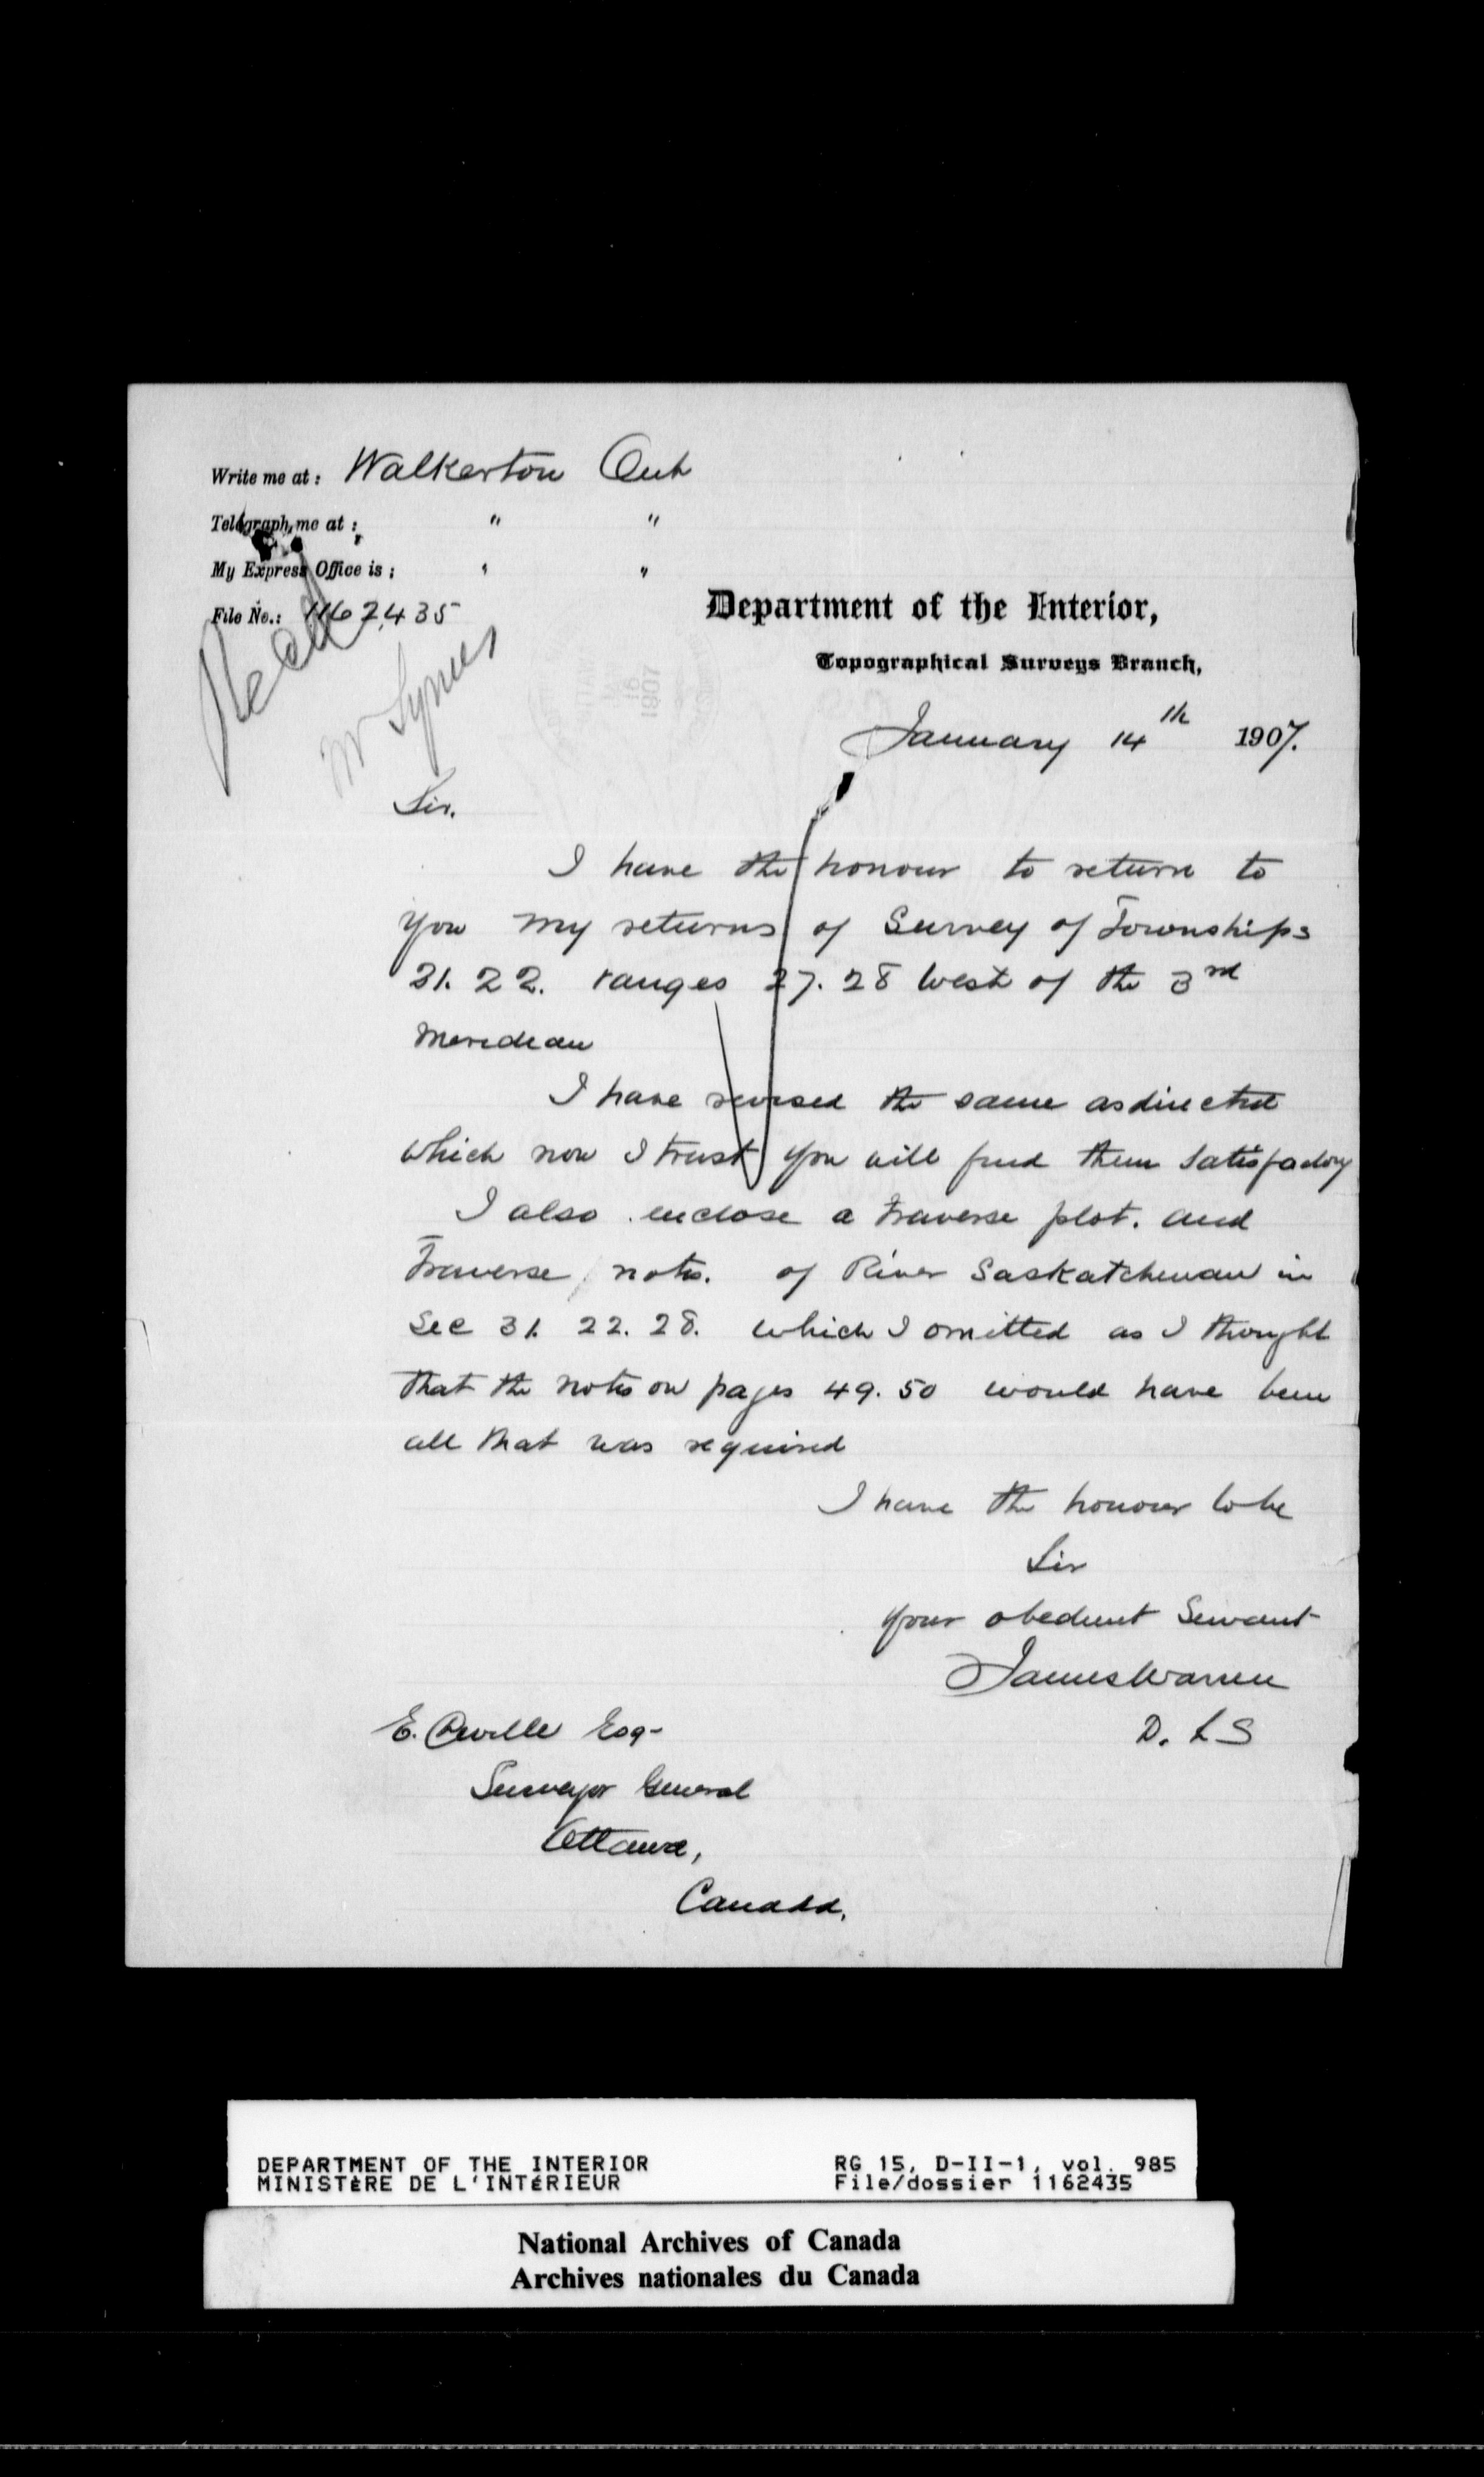 Write me at: Walkerton Ont
Telegraph me at: " "
My Express Office is: " "
File No.: 1162435
Department of the Interior,
Topographical Surveys Branch,
Recd
Mr Symes
January 14th 1907.
Sir.
I have the honour to return to
you my returns of Survey of Townships
21. 22. ranges 27. 28 West of the 3rd
Meredian
I have revised the same as directed
which now I trust you will find them Satisfactory
I also enclose a traverse plot. and
Traverse notes. of River Saskatchewan in
Sec 31. 22. 28. which I omitted as I thought
that the notes on pages 49. 50 would have been
all that was required
I have the honour to be
Sir
your obedient Servant
James Warren
D. L S
E. Deville Esq-
Surveyor General
Ottawa,
Canada.
DEPARTMENT OF THE INTERIOR RG 15, D-II-1, vol. 985
MINISTÈRE DE L'INTÉRIEUR File/dossier 1162435
National Archives of Canada
Archives nationales du Canada